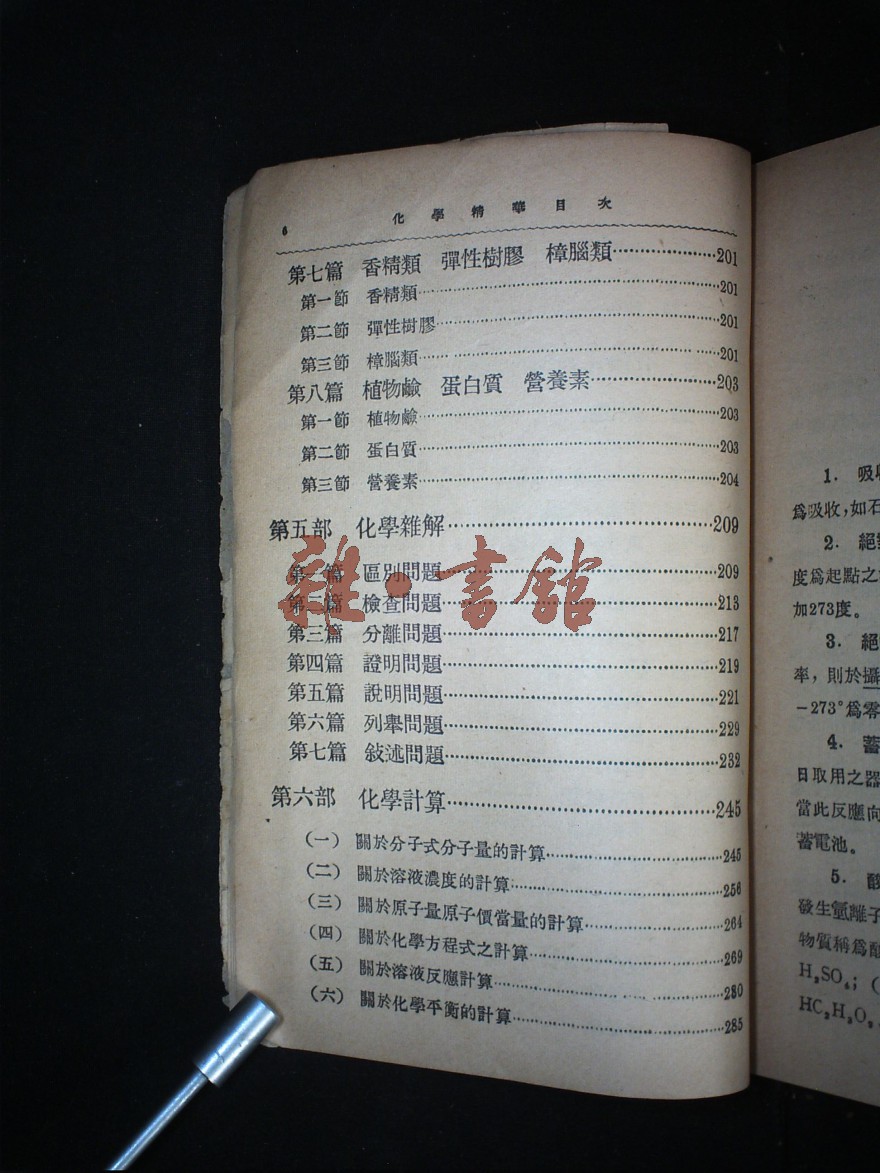 6 化學精華目次
第七篇 香精類 彈性樹膠 樟腦類…………201
第一節 香精類…………201
第二節 彈性樹膠…………201
第三節 樟腦類…………201
第八篇 植物鹼 蛋白質 營養素…………203
第一節 植物鹼…………203
第二節 蛋白質…………203
第三節 營養素…………204
第五部 化學雜解…………209
第一篇 區別問題…………209
第二篇 檢查問題…………213
第三篇 分離問題…………217
第四篇 證明問題…………219
第五篇 說明問題…………221
第六篇 列舉問題…………229
第七篇 敍述問題…………232
第六部 化學計算…………245
(一) 關於分子式分子量的計算…………245
(二) 關於溶液濃度的計算…………256
(三) 關於原子量原子價當量的計算…………264
(四) 關於化學方程式之計算…………269
(五) 關於溶液反應計算…………280
(六) 關於化學平衡的計算…………285
雜·書館
1. 吸
爲吸收,如石
2. 絕
度爲起點之
加273度。
3. 絕
率,則於攝
-273°爲零
4. 蓄
日取用之器
當此反應向
蓄電池。
5. 酸
發生氫離子
物質稱爲酸
H₂SO₄; (
HC₂H₃O₂